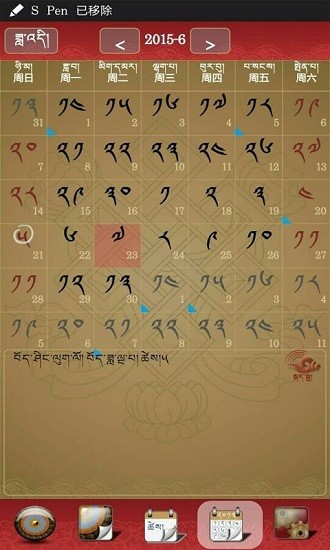 S Pen 已移除
ཟླ་འདི། < 2015-6 >
ཉི་མ། ཟླ་བ། མིག་དམར། ལྷག་པ། ཕུར་བུ། པ་སངས། སྤེན་པ།
周日 周一 周二 周三 周四 周五 周六
༡༣ ༡༤ ༡༥ ༡༦ ༡༧ ༡༨ ༡༩
31 1 2 3 4 5 6
༢༠ ༢༡ ༢༢ ༢༣ ༢༤
7 8 9 10 11 12 13
༢༨ ༢༩ ༣༠ ༡ ༢ ༣ ༤
14 15 16 17 18 19 20
༥ ༦ ༧ ༨ ༩ ༡༠ ༡༡
21 22 23 24 25 26 27
༡༡ ༡༢ ༡༣
28 29 30 1 2 3 4
༡༩ ༢༠ ༢༡ ༢༢ ༢༣ ༢༤ ༢༥
5 6 7 8 9 10 11
བོད་ཤིང་ལུག་ལོ། བོད་ཟླ་ལྔ་པ། ཚེས༥